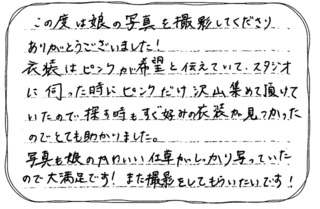 この度は娘の写真を撮影してくださり
ありがとうございました!
衣装はピンクが希望と伝えていて、スタジオ
に伺った時にピンクだけ沢山集めて頂けて
いたので、探す時もすぐ好みの衣装が見つかった
のでとても助かりました。
写真も娘のかわいい仕草がしっかり写っていた
ので大満足です!また撮影をしてもらいたいです!